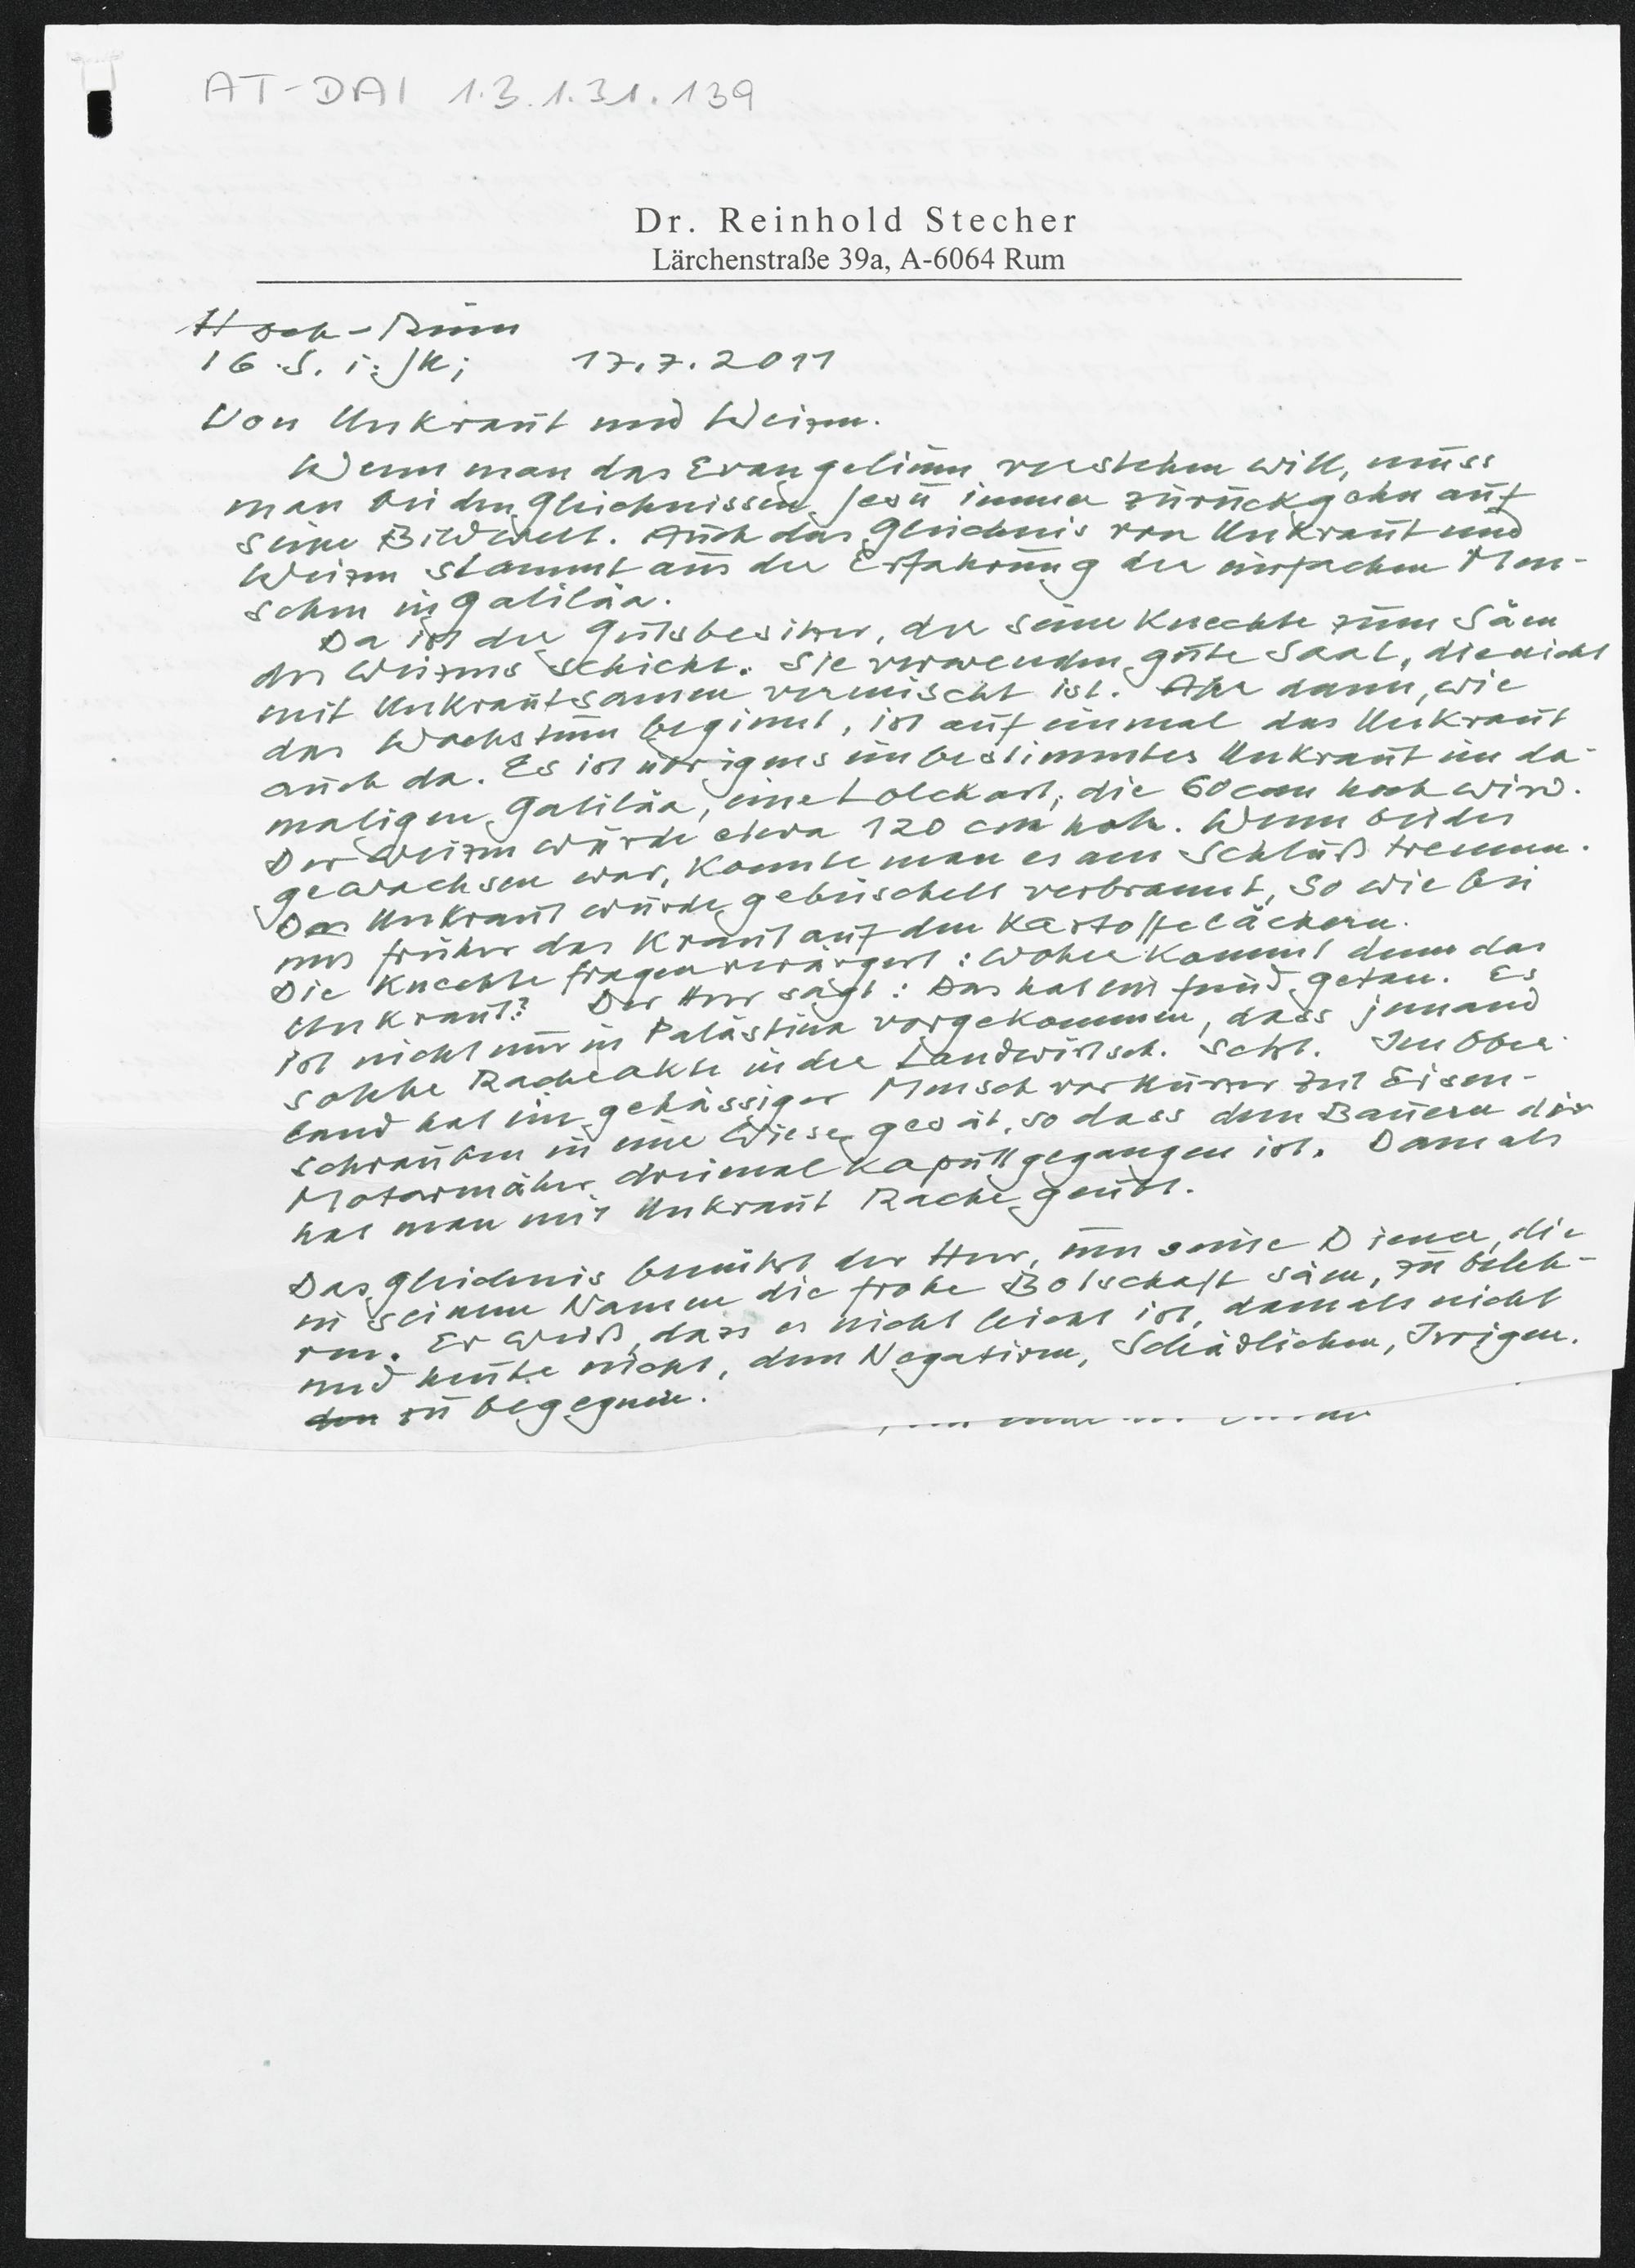 AT-DAI 1.3.1.31.139
Dr. Reinhold Stecher
Lärchenstraße 39a, A-6064 Rum
Hoch-Rum
16. S. i. JK; 17.7.2011
Von Unkraut und Weizen.
Wenn man das Evangelium verstehen will, muss
man bei den Gleichnissen Jesu immer zurückgehn auf
seine Bildwelt. Auch das Gleichnis von Unkraut und
Weizen stammt aus der Erfahrung der einfachen Men-
schen in Galiläa.
Da ist der Gutsbesitzer, der seine Knechte zum Säen
des Weizens schickt. Sie verwenden gute Saat, die nicht
mit Unkrautsamen vermischt ist. Aber dann, wie
das Wachstum beginnt, ist auf einmal das Unkraut
auch da. Es ist übrigens ein bestimmtes Unkraut im da-
maligen Galiläa, eine Lolchart, die 60 cm hoch wird.
Der Weizen wurde etwa 120 cm hoch. Wenn beides
gewachsen war, konnte man es am Schluß trennen.
Das Unkraut wurde gebüschelt verbrannt, so wie bei
uns früher das Kraut auf den Kartoffeläckern.
Die Knechte fragen verärgert: Woher kommt denn das
Unkraut? Der Herr sagt: Das hat ein Feind getan. Es
ist nicht nur in Palästina vorgekommen, dass jemand
solche Racheakte in der Landwirtsch. setzt. Im Ober-
land hat ein gehässiger Mensch vor kurzer Zeit Eisen-
schrauben in eine Wiese gesät, so dass dem Bauern der
Motormäher dreimal kaputt gegangen ist. Damals
hat man mit Unkraut Rache geübt.
Das Gleichnis benützt der Herr, um seine Diener, die
in seinem Namen die frohe Botschaft säen, zu beleh-
ren. Er weiß, dass es nicht leicht ist, damals nicht
und heute nicht, dem Negativen, Schädlichen, Irrigen.
den zu begegnen.